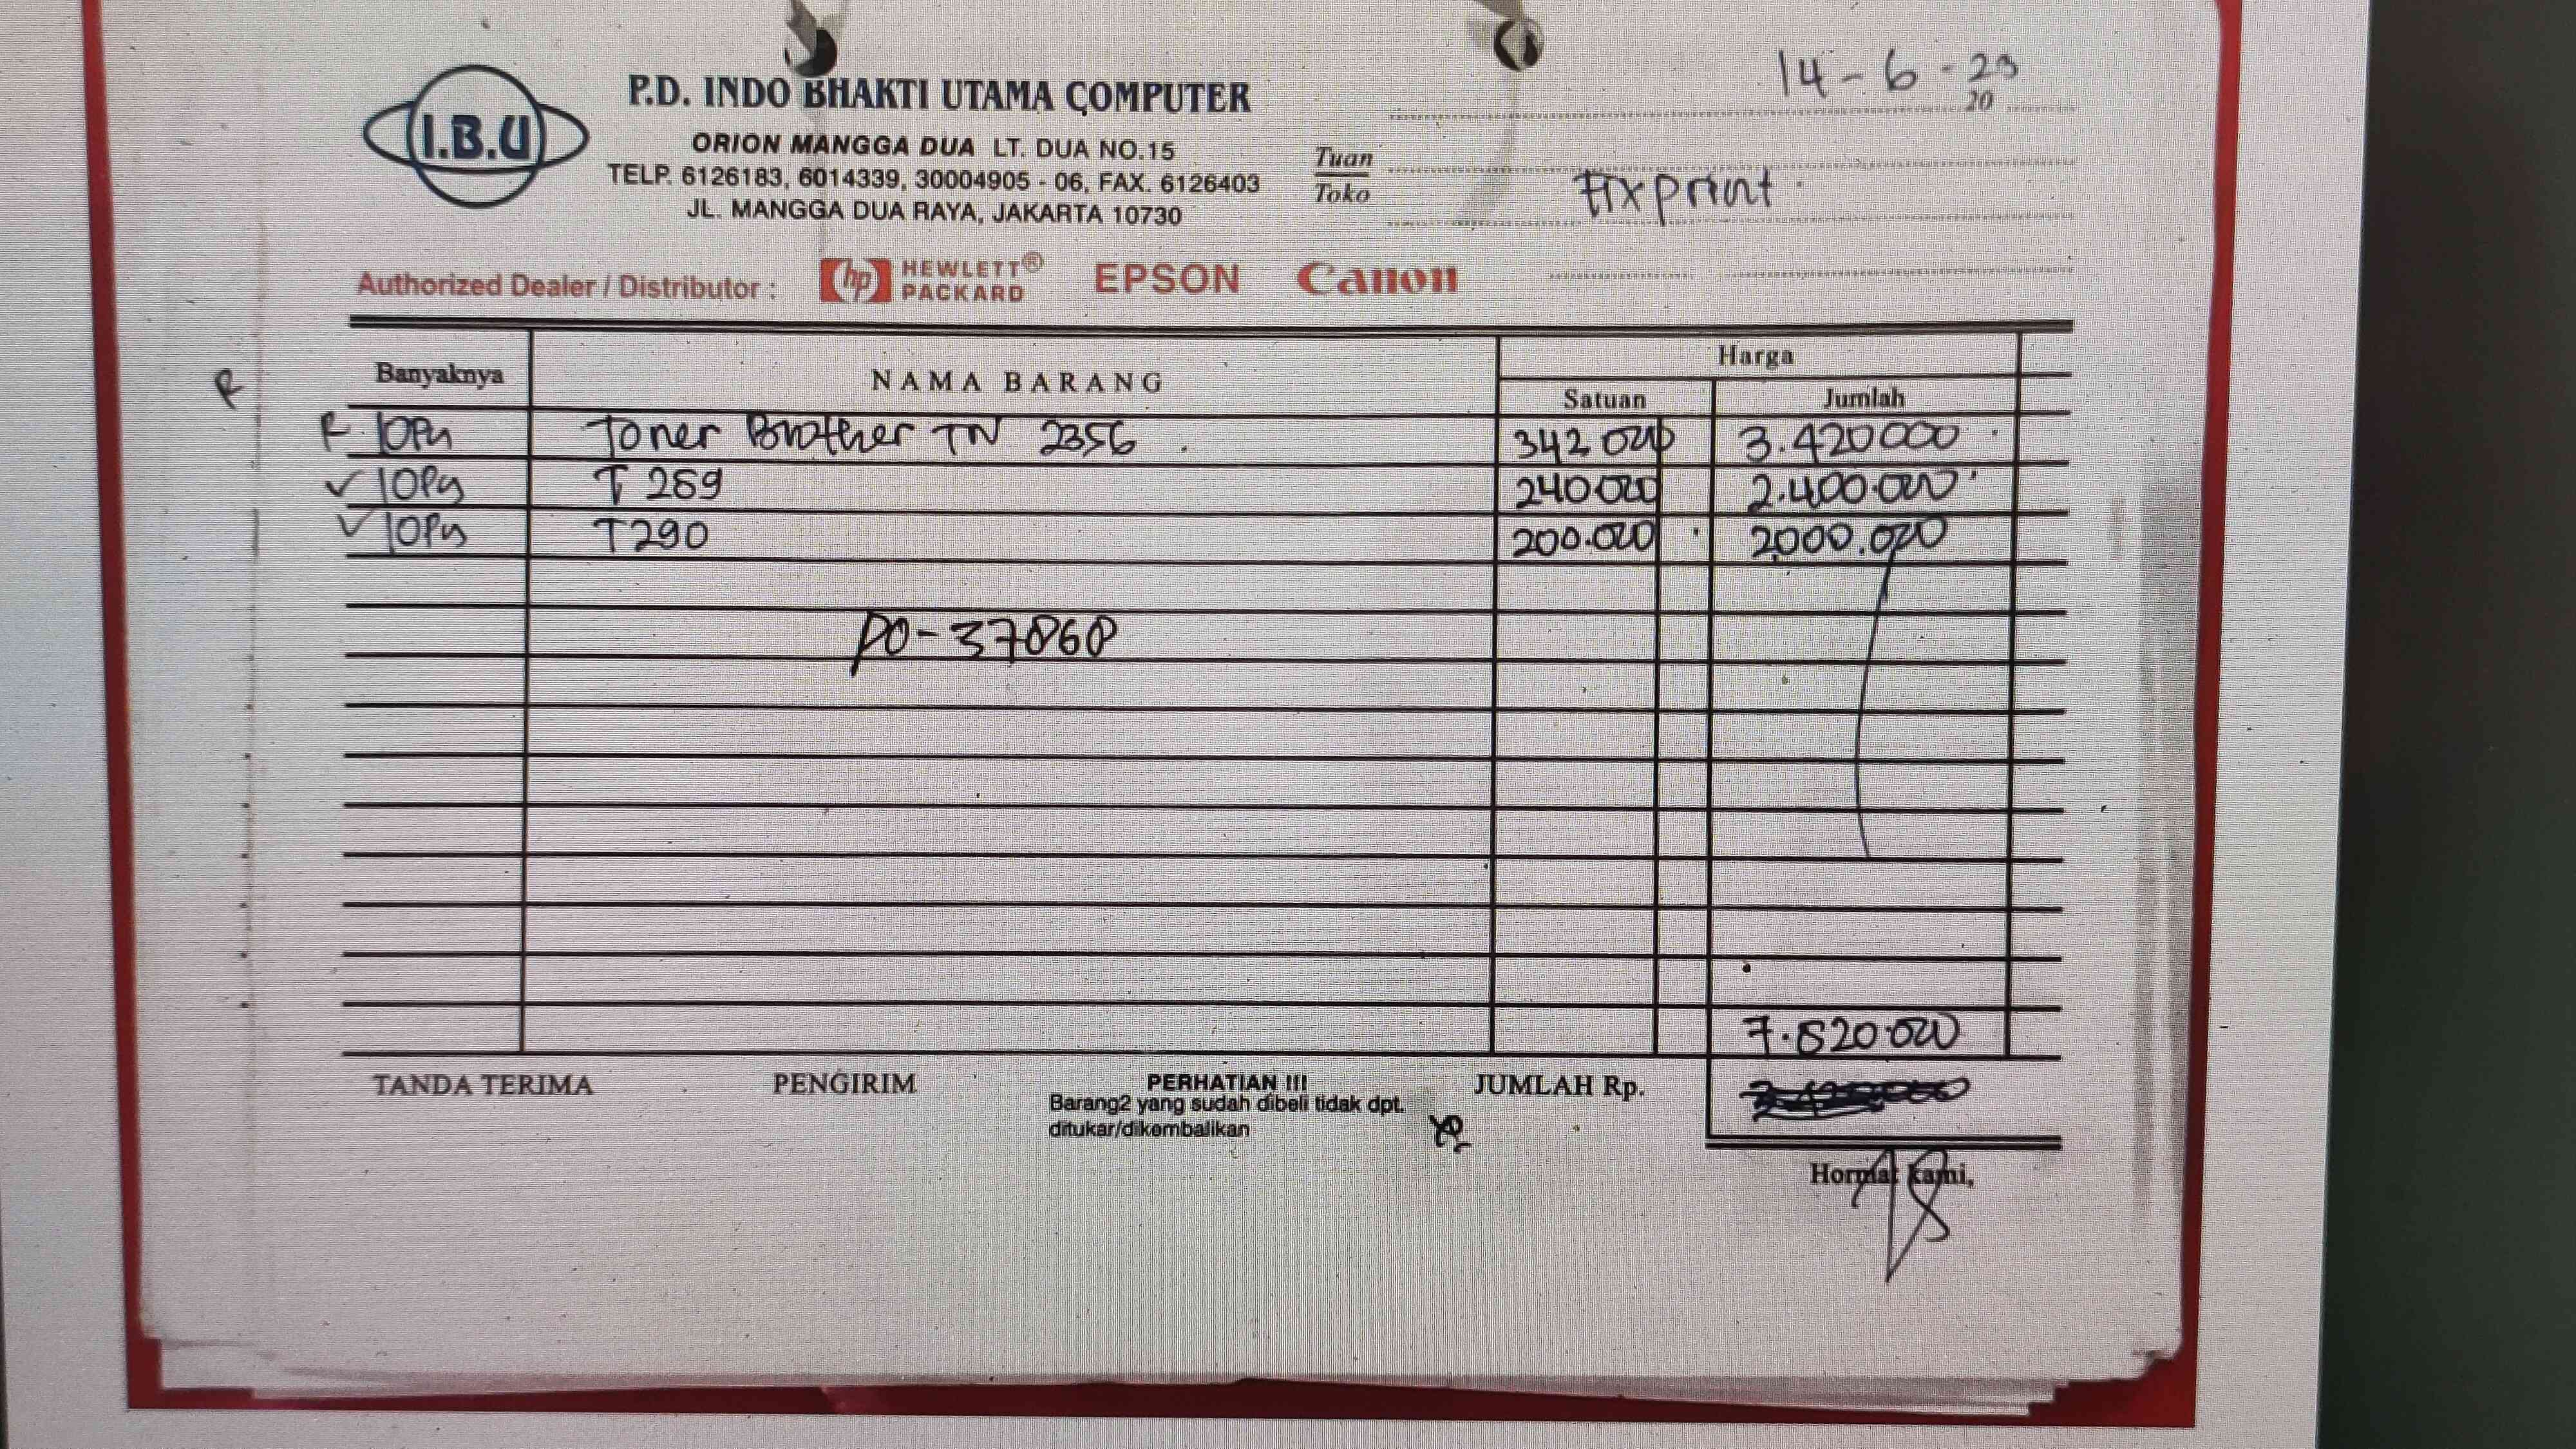 14-6-23
20
I.B.U
P.D. INDO BHAKTI UTAMA COMPUTER
ORION MANGGA DUA LT. DUA NO.15
TELP. 6126183, 6014339, 30004905 - 06, FAX. 6126403
JL. MANGGA DUA RAYA, JAKARTA 10730
Tuan
Toko
Fixprint
Authorized Dealer / Distributor : hp HEWLETT® PACKARD EPSON Canon
Banyaknya NAMA BARANG Harga
Satuan Jumlah
10 Toner Brother TN 2356 342 000 3.420000
10 T 289 240 000 2.400.000
10 T290 200.000 2000.000
PO-37868
7.820.000
TANDA TERIMA PENGIRIM PERHATIAN !!! JUMLAH Rp.
Barang2 yang sudah dibeli tidak dpt.
ditukar/dikembalikan
Hormat kami,